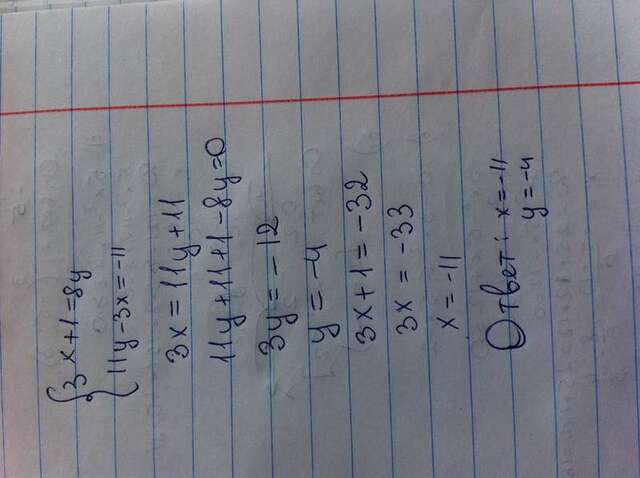 {3x+1=8y
11y-3x=-11
3x=11y+11
11y+11+1-8y=0
3y=-12
y=-4
3x+1=-32
3x=-33
x=-11
Ответ: x=-11
y=-4